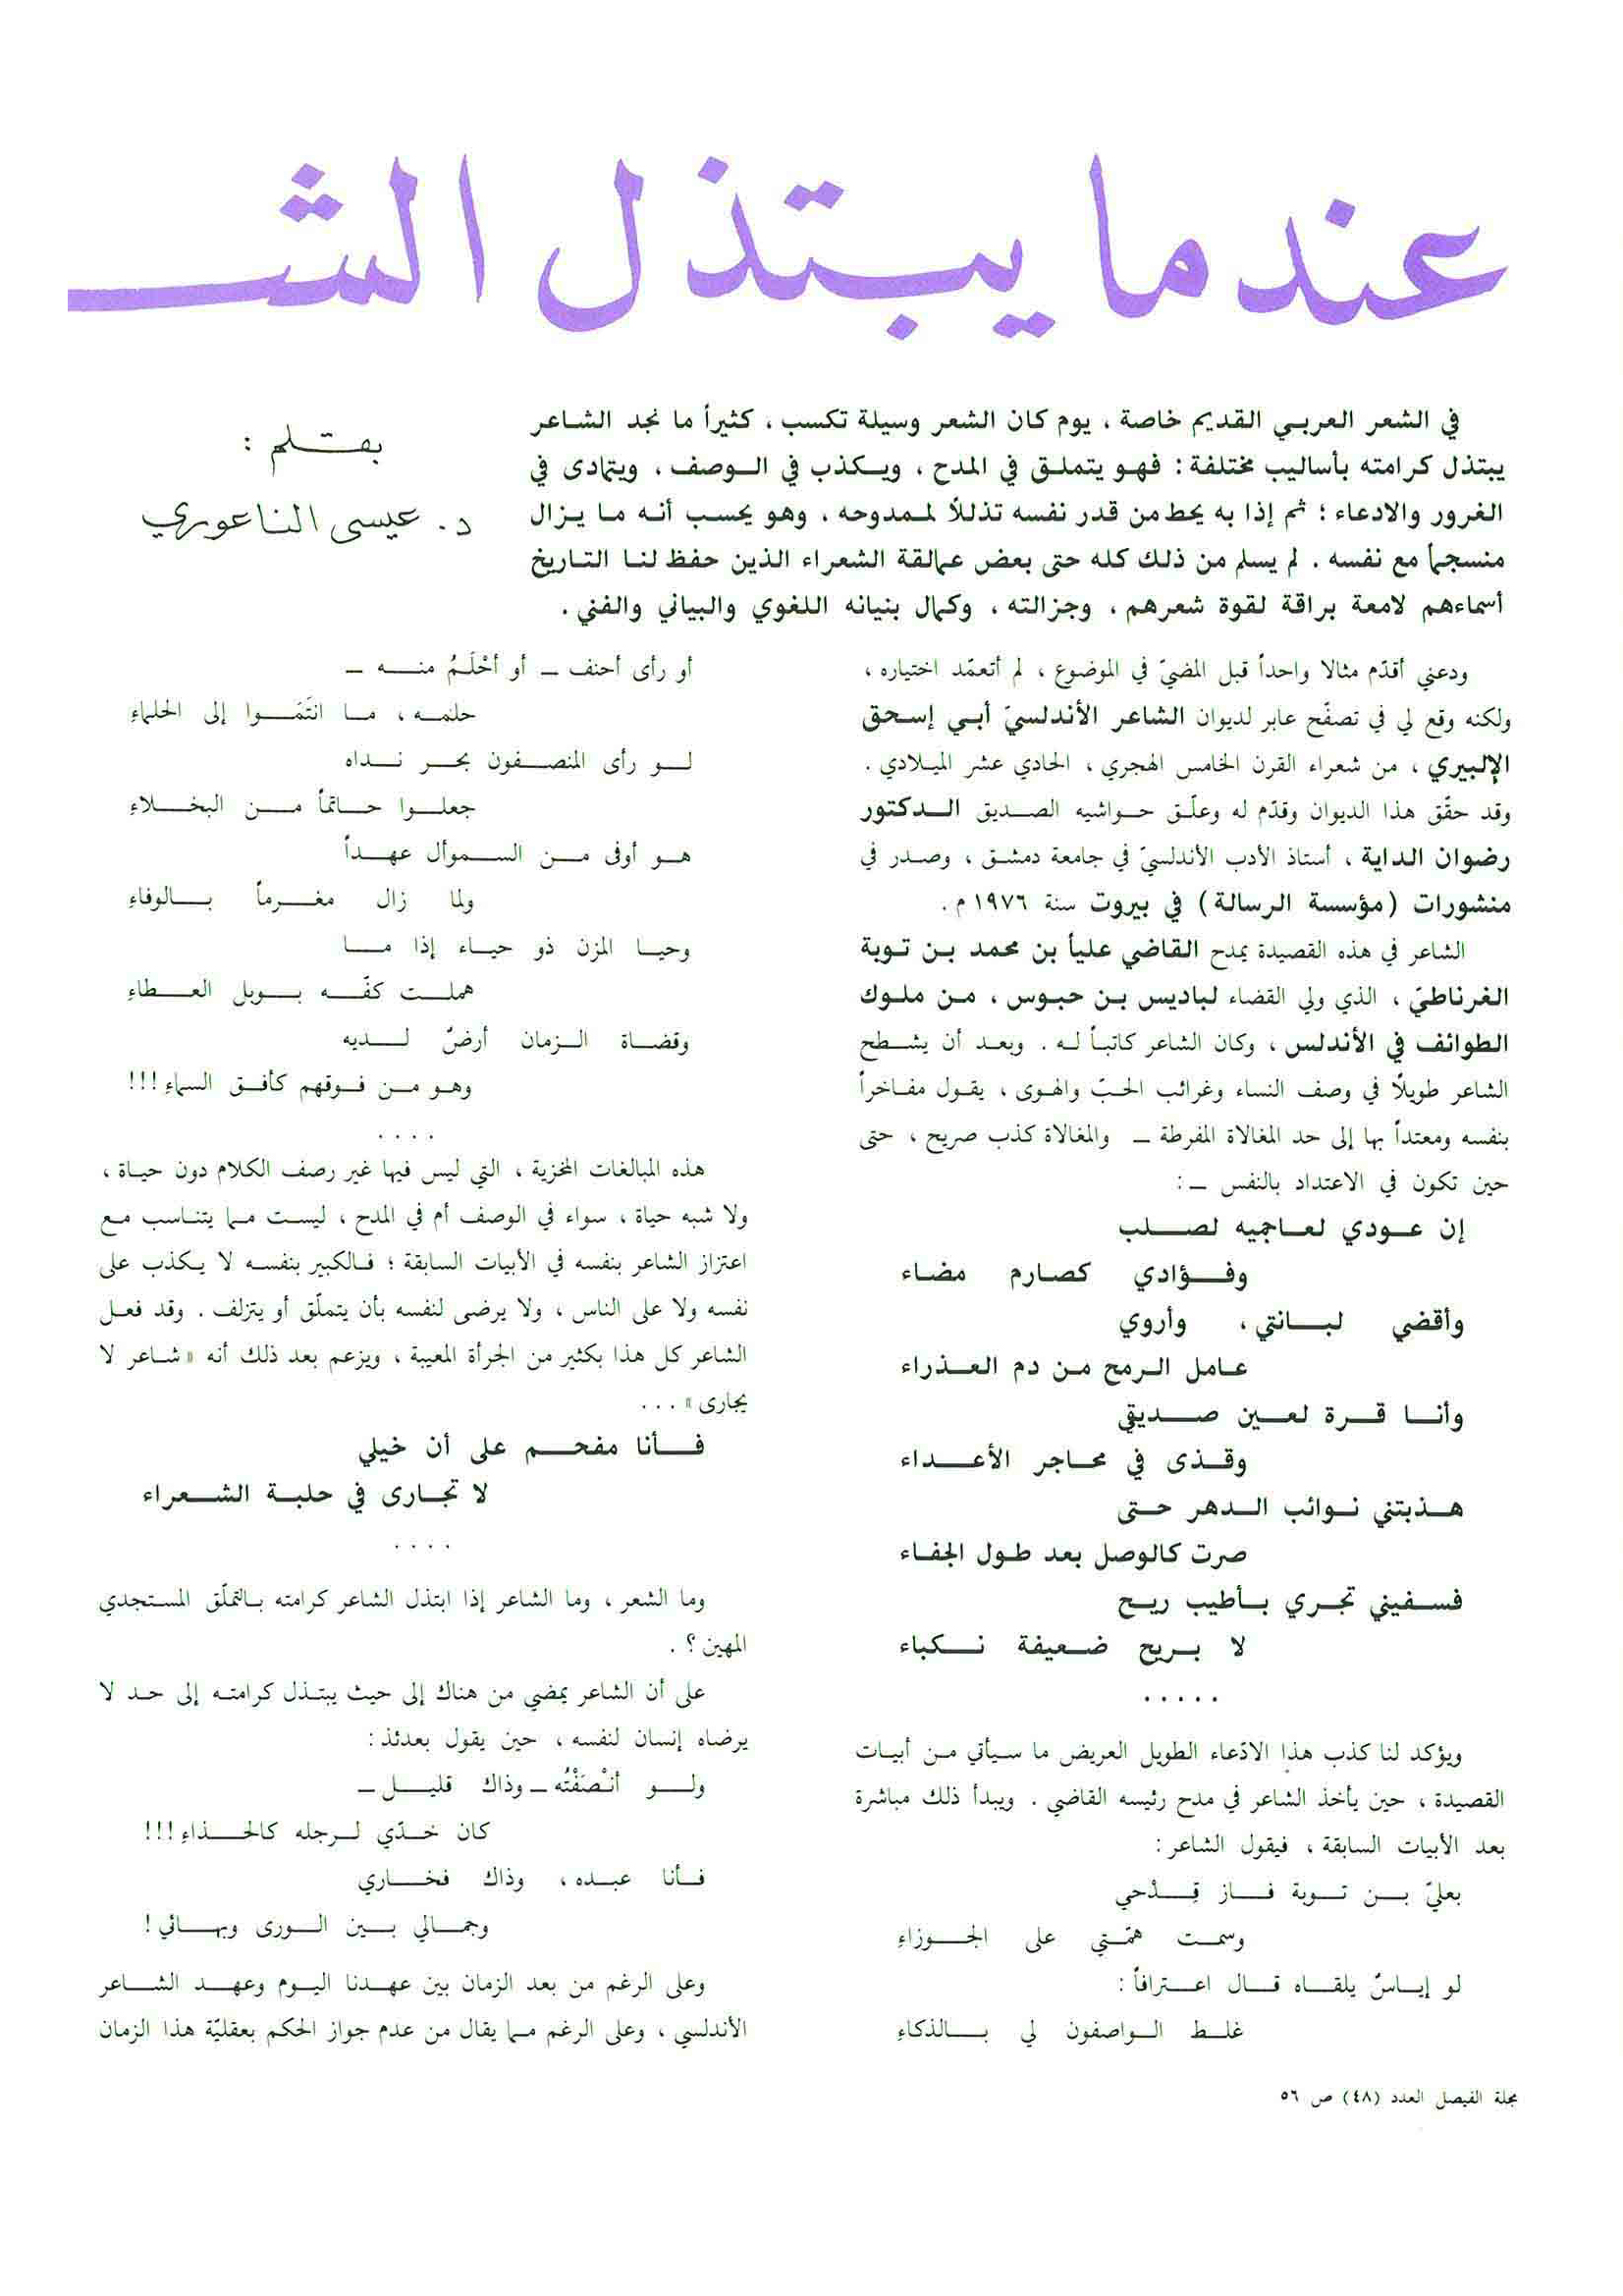 عندما يبتذل الشـ
في الشعر العربي القديم خاصة ، يوم كان الشعر وسيلة تكسب ، كثيراً ما نجد الشاعر
يبتذل كرامته بأساليب مختلفة : فهو يتملق في المدح ، ويكذب في الوصف ، ويتمادى في
الغرور والادعاء ؛ ثم إذا به يحط من قدر نفسه تذللاً لممدوحه ، وهو يحسب أنه ما يزال
منسجماً مع نفسه . لم يسلم من ذلك كله حتى بعض عمالقة الشعراء الذين حفظ لنا التاريخ
أسماءهم لامعة براقة لقوة شعرهم ، وجزالته ، وكمال بنيانه اللغوي والبياني والفني .
بقلم :
د . عيسى الناعوري
ودعني أقدّم مثالا واحداً قبل المضيّ في الموضوع ، لم أتعمّد اختياره ،
ولكنه وقع لي في تصفّح عابر لديوان الشاعر الأندلسيّ أبي إسحق
الإلبيري ، من شعراء القرن الخامس الهجري ، الحادي عشر الميلادي .
وقد حقّق هذا الديوان وقدّم له وعلّق حواشيه الصديق الدكتور
رضوان الداية ، أستاذ الأدب الأندلسيّ في جامعة دمشق ، وصدر في
منشورات (مؤسسة الرسالة) في بيروت سنة ١٩٧٦ م .
الشاعر في هذه القصيدة يمدح القاضي علياً بن محمد بن توبة
الغرناطيّ ، الذي ولي القضاء لباديس بن حبوس ، من ملوك
الطوائف في الأندلس ، وكان الشاعر كاتباً له . وبعد أن يشطح
الشاعر طويلاً في وصف النساء وغرائب الحبّ والهوى ، يقول مفاخراً
بنفسه ومعتداً بها إلى حد المغالاة المفرطة ــ والمغالاة كذب صريح ، حتى
حين تكون في الاعتداد بالنفس ــ :
إن عودي لعاجميه لصلب
وفؤادي كصارم مضاء
وأقضي لبانتي ، وأروي
عامل الرمح من دم العذراء
وأنا قرة لعين صديقي
وقذى في محاجر الأعداء
هذبتني نوائب الدهر حتى
صرت كالوصل بعد طول الجفاء
فسفيني تجري بأطيب ريح
لا بريح ضعيفة نكباء
. . . . .
ويؤكد لنا كذب هذا الادّعاء الطويل العريض ما سيأتي من أبيات
القصيدة ، حين يأخذ الشاعر في مدح رئيسه القاضي . ويبدأ ذلك مباشرة
بعد الأبيات السابقة ، فيقول الشاعر :
بعليّ بن توبة فاز قِدْحي
وسمت همّتي على الجوزاءِ
لو إياسٌ يلقاه قال اعترافاً :
غلط الواصفون لي بالذكاءِ
أو رأى أحنف ــ أو أحْلَمُ منه ــ
حلمه ، ما انتَمَوا إلى الحلماءِ
لو رأى المنصفون بحر نداه
جعلوا حاتماً من البخلاءِ
هو أوفى من السموأل عهداً
ولما زال مغرماً بالوفاءِ
وحيا المزن ذو حياء إذا ما
هملت كفّه بوبل العطاءِ
وقضاة الزمان أرضٌ لديه
وهو من فوقهم كأفق السماءِ !!!
. . . .
هذه المبالغات المخزية ، التي ليس فيها غير رصف الكلام دون حياة ،
ولا شبه حياة ، سواء في الوصف أم في المدح ، ليست مما يتناسب مع
اعتزاز الشاعر بنفسه في الأبيات السابقة ؛ فالكبير بنفسه لا يكذب على
نفسه ولا على الناس ، ولا يرضى لنفسه بأن يتملّق أو يتزلف . وقد فعل
الشاعر كل هذا بكثير من الجرأة المعيبة ، ويزعم بعد ذلك أنه « شاعر لا
يجارى » . . .
فأنا مفحم على أن خيلي
لا تجارى في حلبة الشعراء
. . . .
وما الشعر ، وما الشاعر إذا ابتذل الشاعر كرامته بالتملّق المستجدي
المهين ؟ .
على أن الشاعر يمضي من هناك إلى حيث يبتذل كرامته إلى حد لا
يرضاه إنسان لنفسه ، حين يقول بعدئذ :
ولو أنْصَفْتُه ــ وذاك قليل ــ
كان خدّي لرجله كالحذاءِ !!!
فأنا عبده ، وذاك فخاري
وجمالي بين الورى وبهائي !
وعلى الرغم من بعد الزمان بين عهدنا اليوم وعهد الشاعر
الأندلسي ، وعلى الرغم مما يقال من عدم جواز الحكم بعقليّة هذا الزمان
مجلة الفيصل العدد (٤٨) ص ٥٦